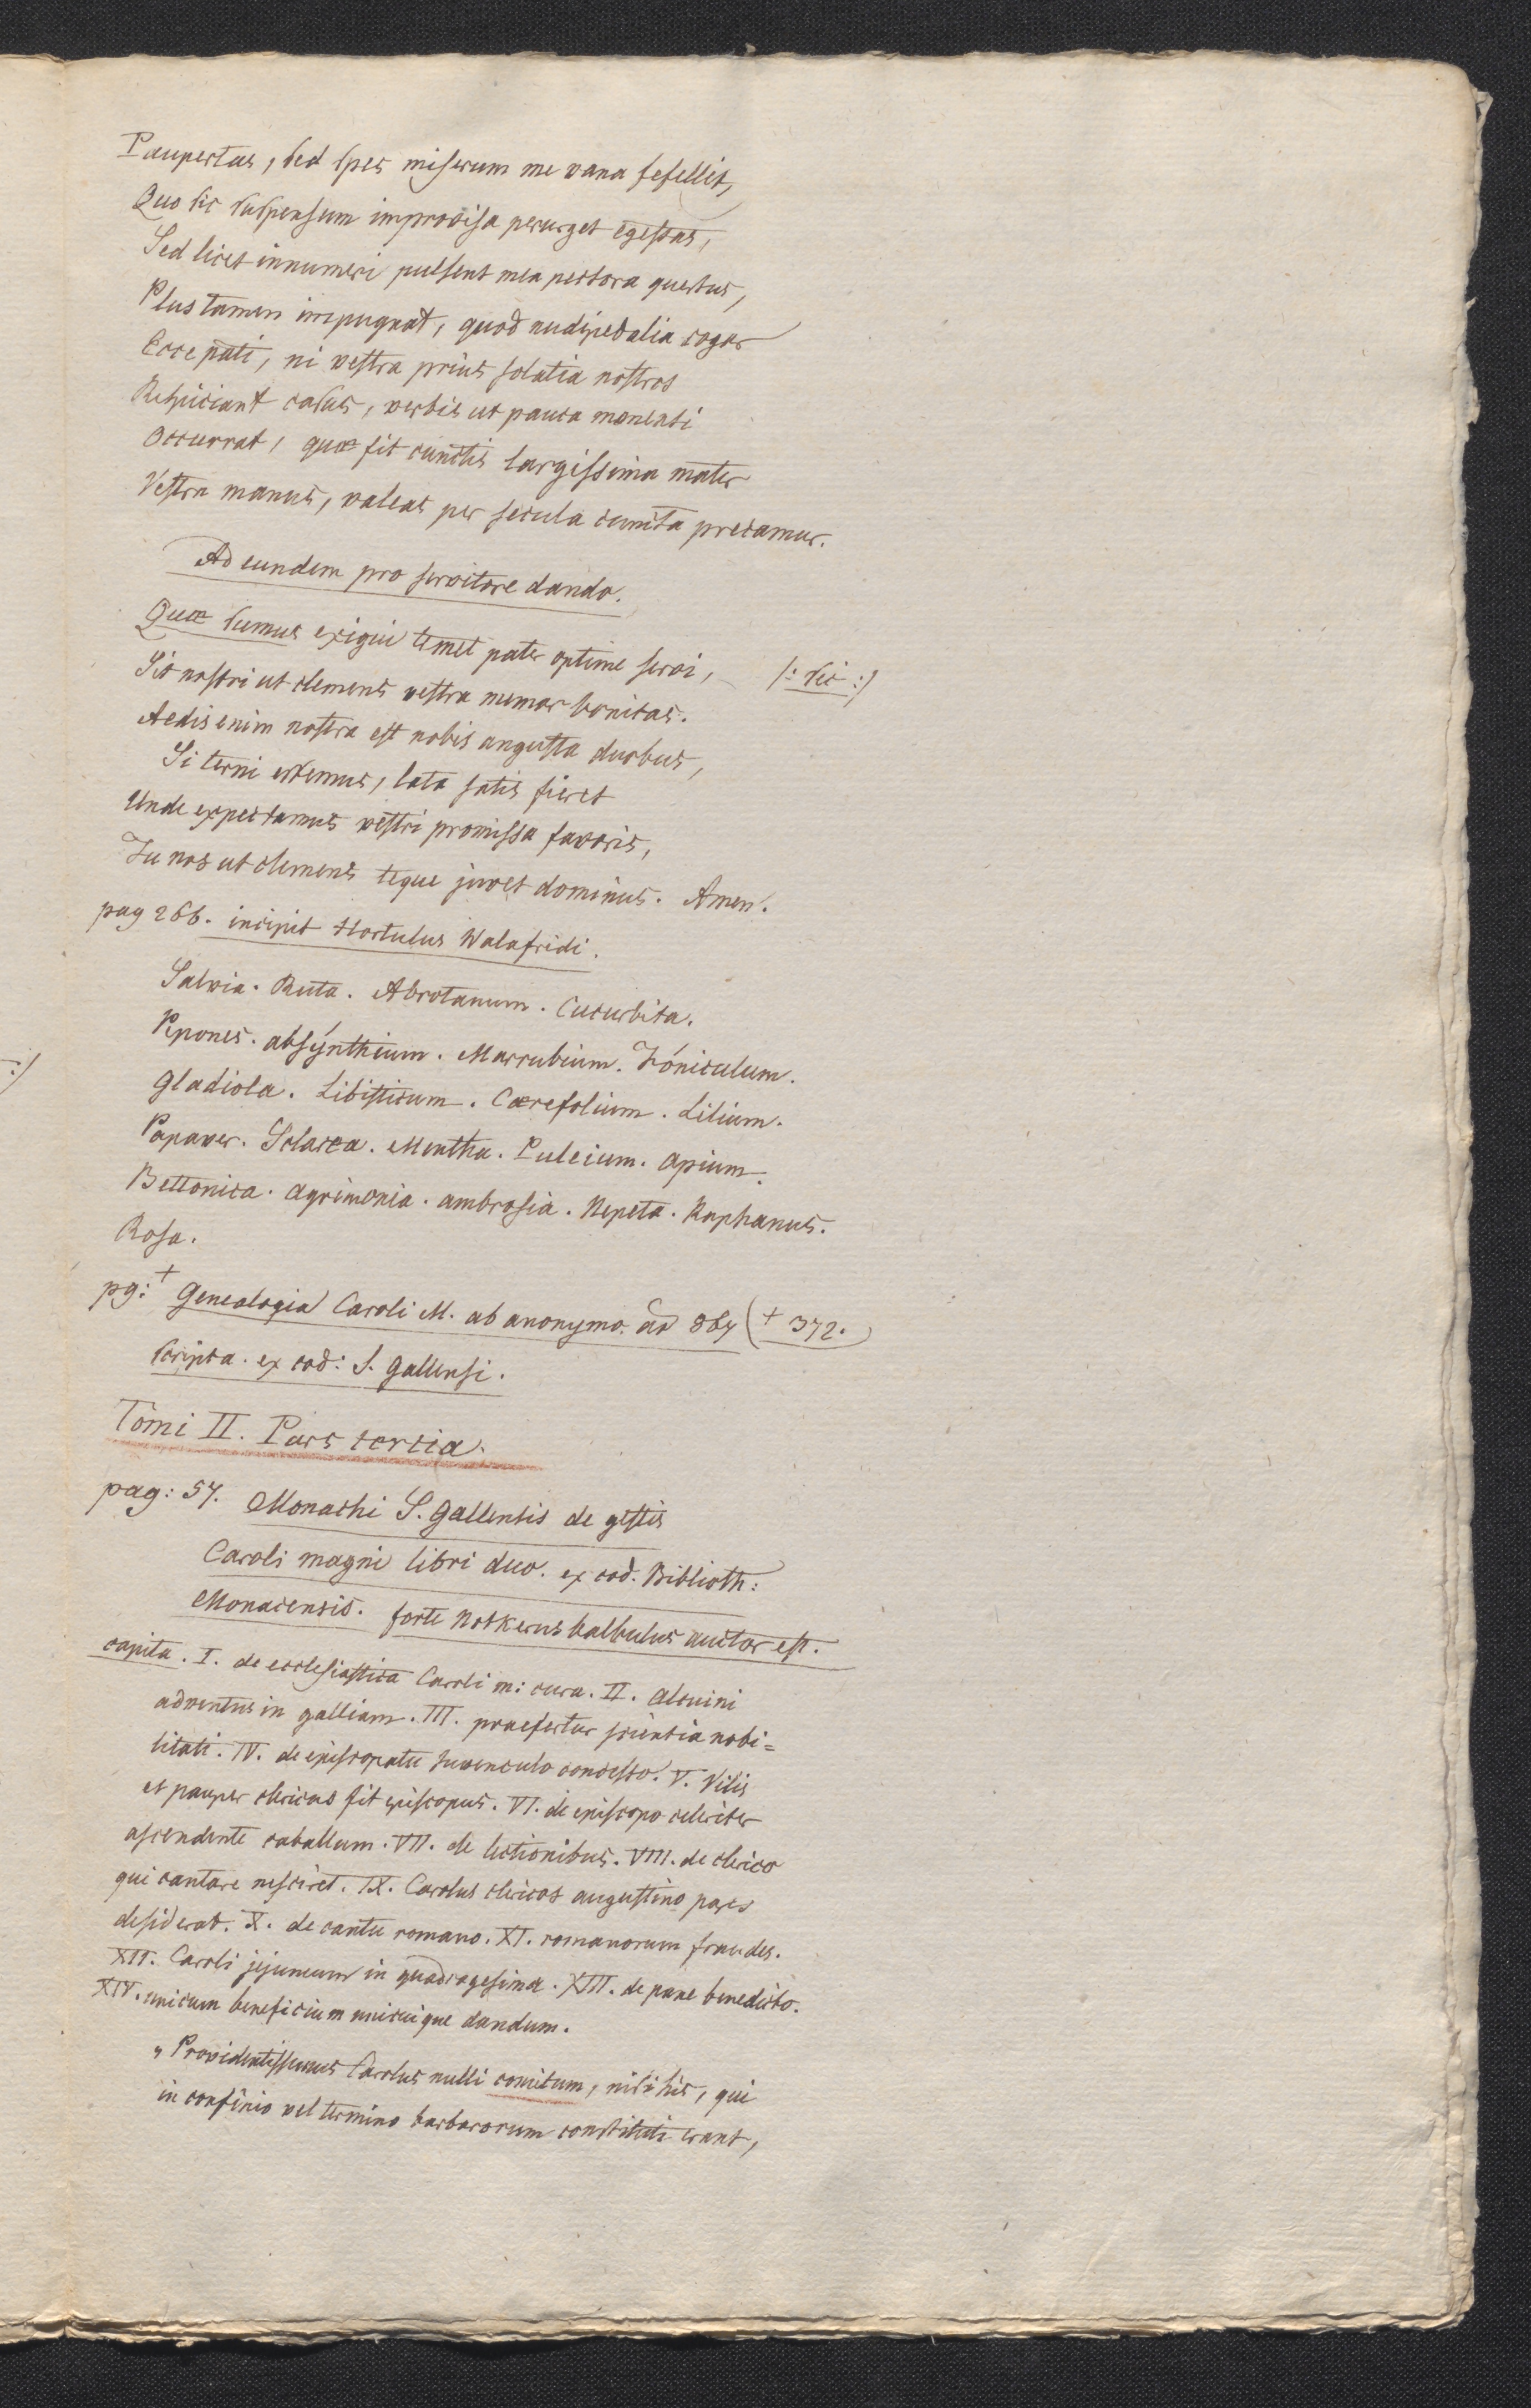 Paupertas, sed spes miserum me vana fefellit,
Quo sic suspensum improvisa perurget egestas,
Sed licet innumeri pulsent mea pectora questus,
Plus tamen impugnat, quod nudipedalia cogor
Ecce pati, ni vestra prius solatia nostros
Respiciant casus, verbis ut pauca monenti
Occurrat, quæ fit cunctis largissima mater
Vestra manus, valeas per secula cuncta precamur.
Ad eundem pro servitore dando.
Quæ sumus exigui temet pater optime servi, /: sic :/
Sit nostri ut clemens vestra memor bonitas.
Aedis enim nostra est nobis angusta duobus,
Si terni essemus, lata satis fieret
Unde expectamus vestri promissa favoris,
Tu nos ut clemens teque juvet dominus. Amen.
pag 266. incipit Hortulus Walafridi.
Salvia. Ruta. Abrotanum. Cucurbita.
Pepones. absynthium. Marrubium. Fóniculum.
Gladiola. Libisticum. Cærefolium. Lilium.
:/
Papaver. Sclarea. Mentha. Puleium. apium.
Bettonica. agrimonia. ambrosia. Nepeta. Raphanus.
Rosa.
pg: + Genealogia Caroli M. ab anonymo. ad 867 (+ 372.
scripta. ex cod: S. Gallensi.
Tomi II. Pars tertia.
pag: 57. Monachi S. Gallensis de gestis
Caroli magni libri duo. ex cod. Biblioth:
Monacensis. forte Notkerus balbulus auctor est.
capita. I. de ecclesiastica Caroli m: cura. II. Alcuini
adventus in galliam. III. praefertur scientia nobi=
litati. IV. de episcopatu juvenculo concesso. V. Vilis
et pauper clericus fit episcopus. VI. de episcopo celeriter
ascendente caballum. VII. de lectionibus. VIII. de clerico
qui cantare nesciret. IX. Carolus clericos augustino pares
desiderat. X. de cantu romano. XI. romanorum fraudes.
XII. Caroli jejunium in quadragesima. XIII. de pane benedicto.
XIV. unicum beneficium unicuique dandum.
„Providentissimus Carolus nulli comitum, nisi his, qui
in confinio vel termino barbarorum constituti erant,